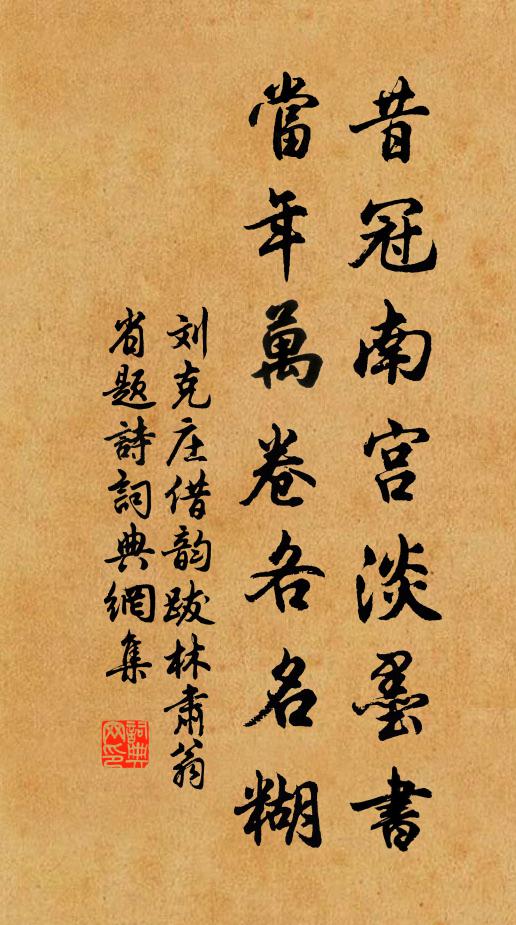 昔冠南宫淡墨書
當年萬卷各名糊
刘克庄借韵跋林肅翁
省题詩詞典網集
詞典网印